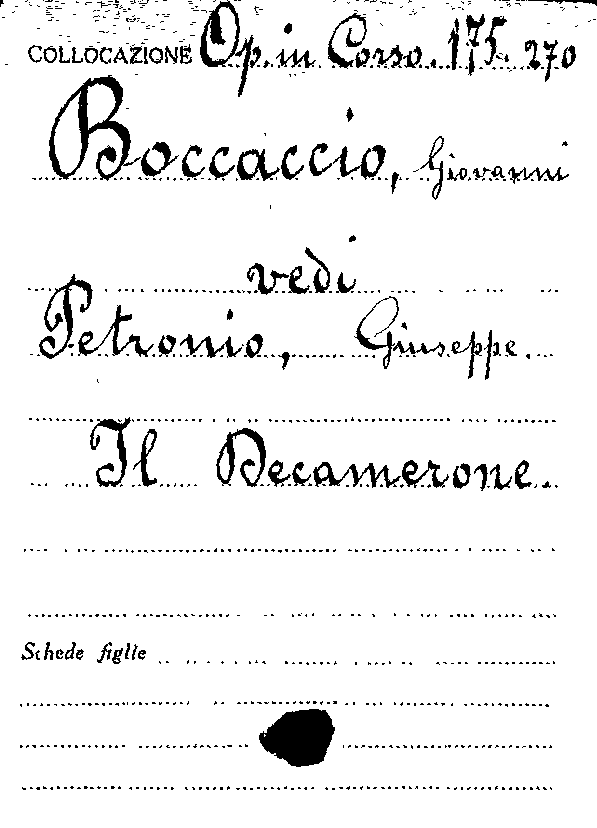 COLLOCAZIONE Op. in Corso. 175. 270
Boccaccio, Giovanni
vedi
Petronio, Giuseppe.
Il Decamerone.
Schede figlie